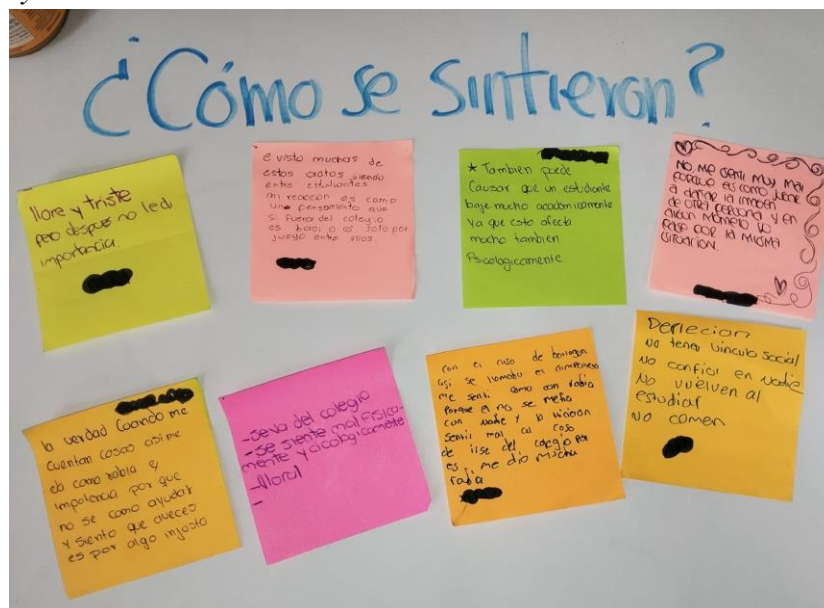 ¿Cómo se sintieron?
llore y triste
pero despues no le di
importancia
e visto muchas de
estos aratos siendo
entre estudiantes
mi reaccion es como
un pensamiento que
si fuera del colegio
es o es solo por
juego entre ellos.
* Tambien puede
Causar que un estudiante
baje mucho academicamente
ya que esto afecta
mucho tambien
Psicologicamente
NO, ME SENTI MUY MAL
PORQUE ES COMO
A DAÑAR LA IMAGEN
DE OTRA PERSONA Y EN
ALGUN MOMENTO YO
PASE POR LA MISMA
SITUACION.
la verdad cuando me
cuentan cosas asi me
da como rabia y
impotencia por que
no se como ayudar
y siento que aveces
es por algo injusto
- se va del colegio
- se siente mal fisica-
mente y cicologicamente
- lloral
-
con el caso de
asi se llamaba el compañero
me senti como con rabia
porque el no se metia
con nadie y lo hicieron
sentir mal al caso
de irse del colegio por
es, me dio mucha
rabia
No tener vinculo social
No confiar en nadie
No vuelven al
estudiar
No comen